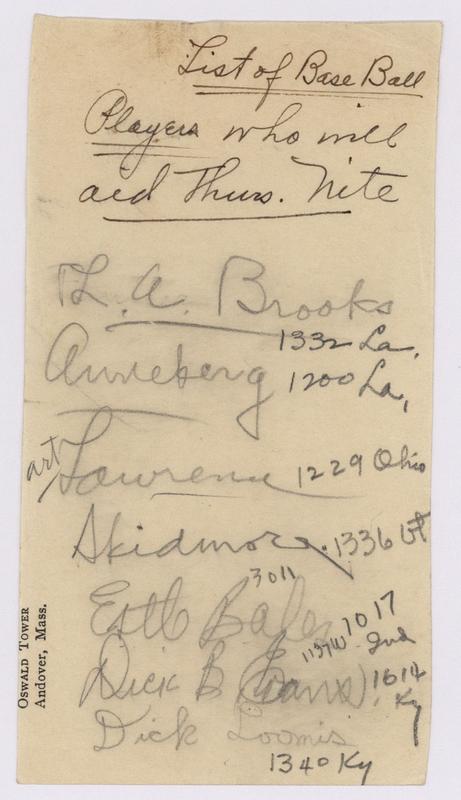 List of Base Ball
Players who will
aid Thurs. Nite
L. A. Brooks
1332 La.
Anneberg 1200 La,
art Lawrence 1229 Ohio
Skidmore. 1336 Vt
3011
Bales 1017
1137 W Ind
Dick B (Evans) 1614
Ky
Dick Loomis
1340 Ky
OSWALD TOWER
Andover, Mass.